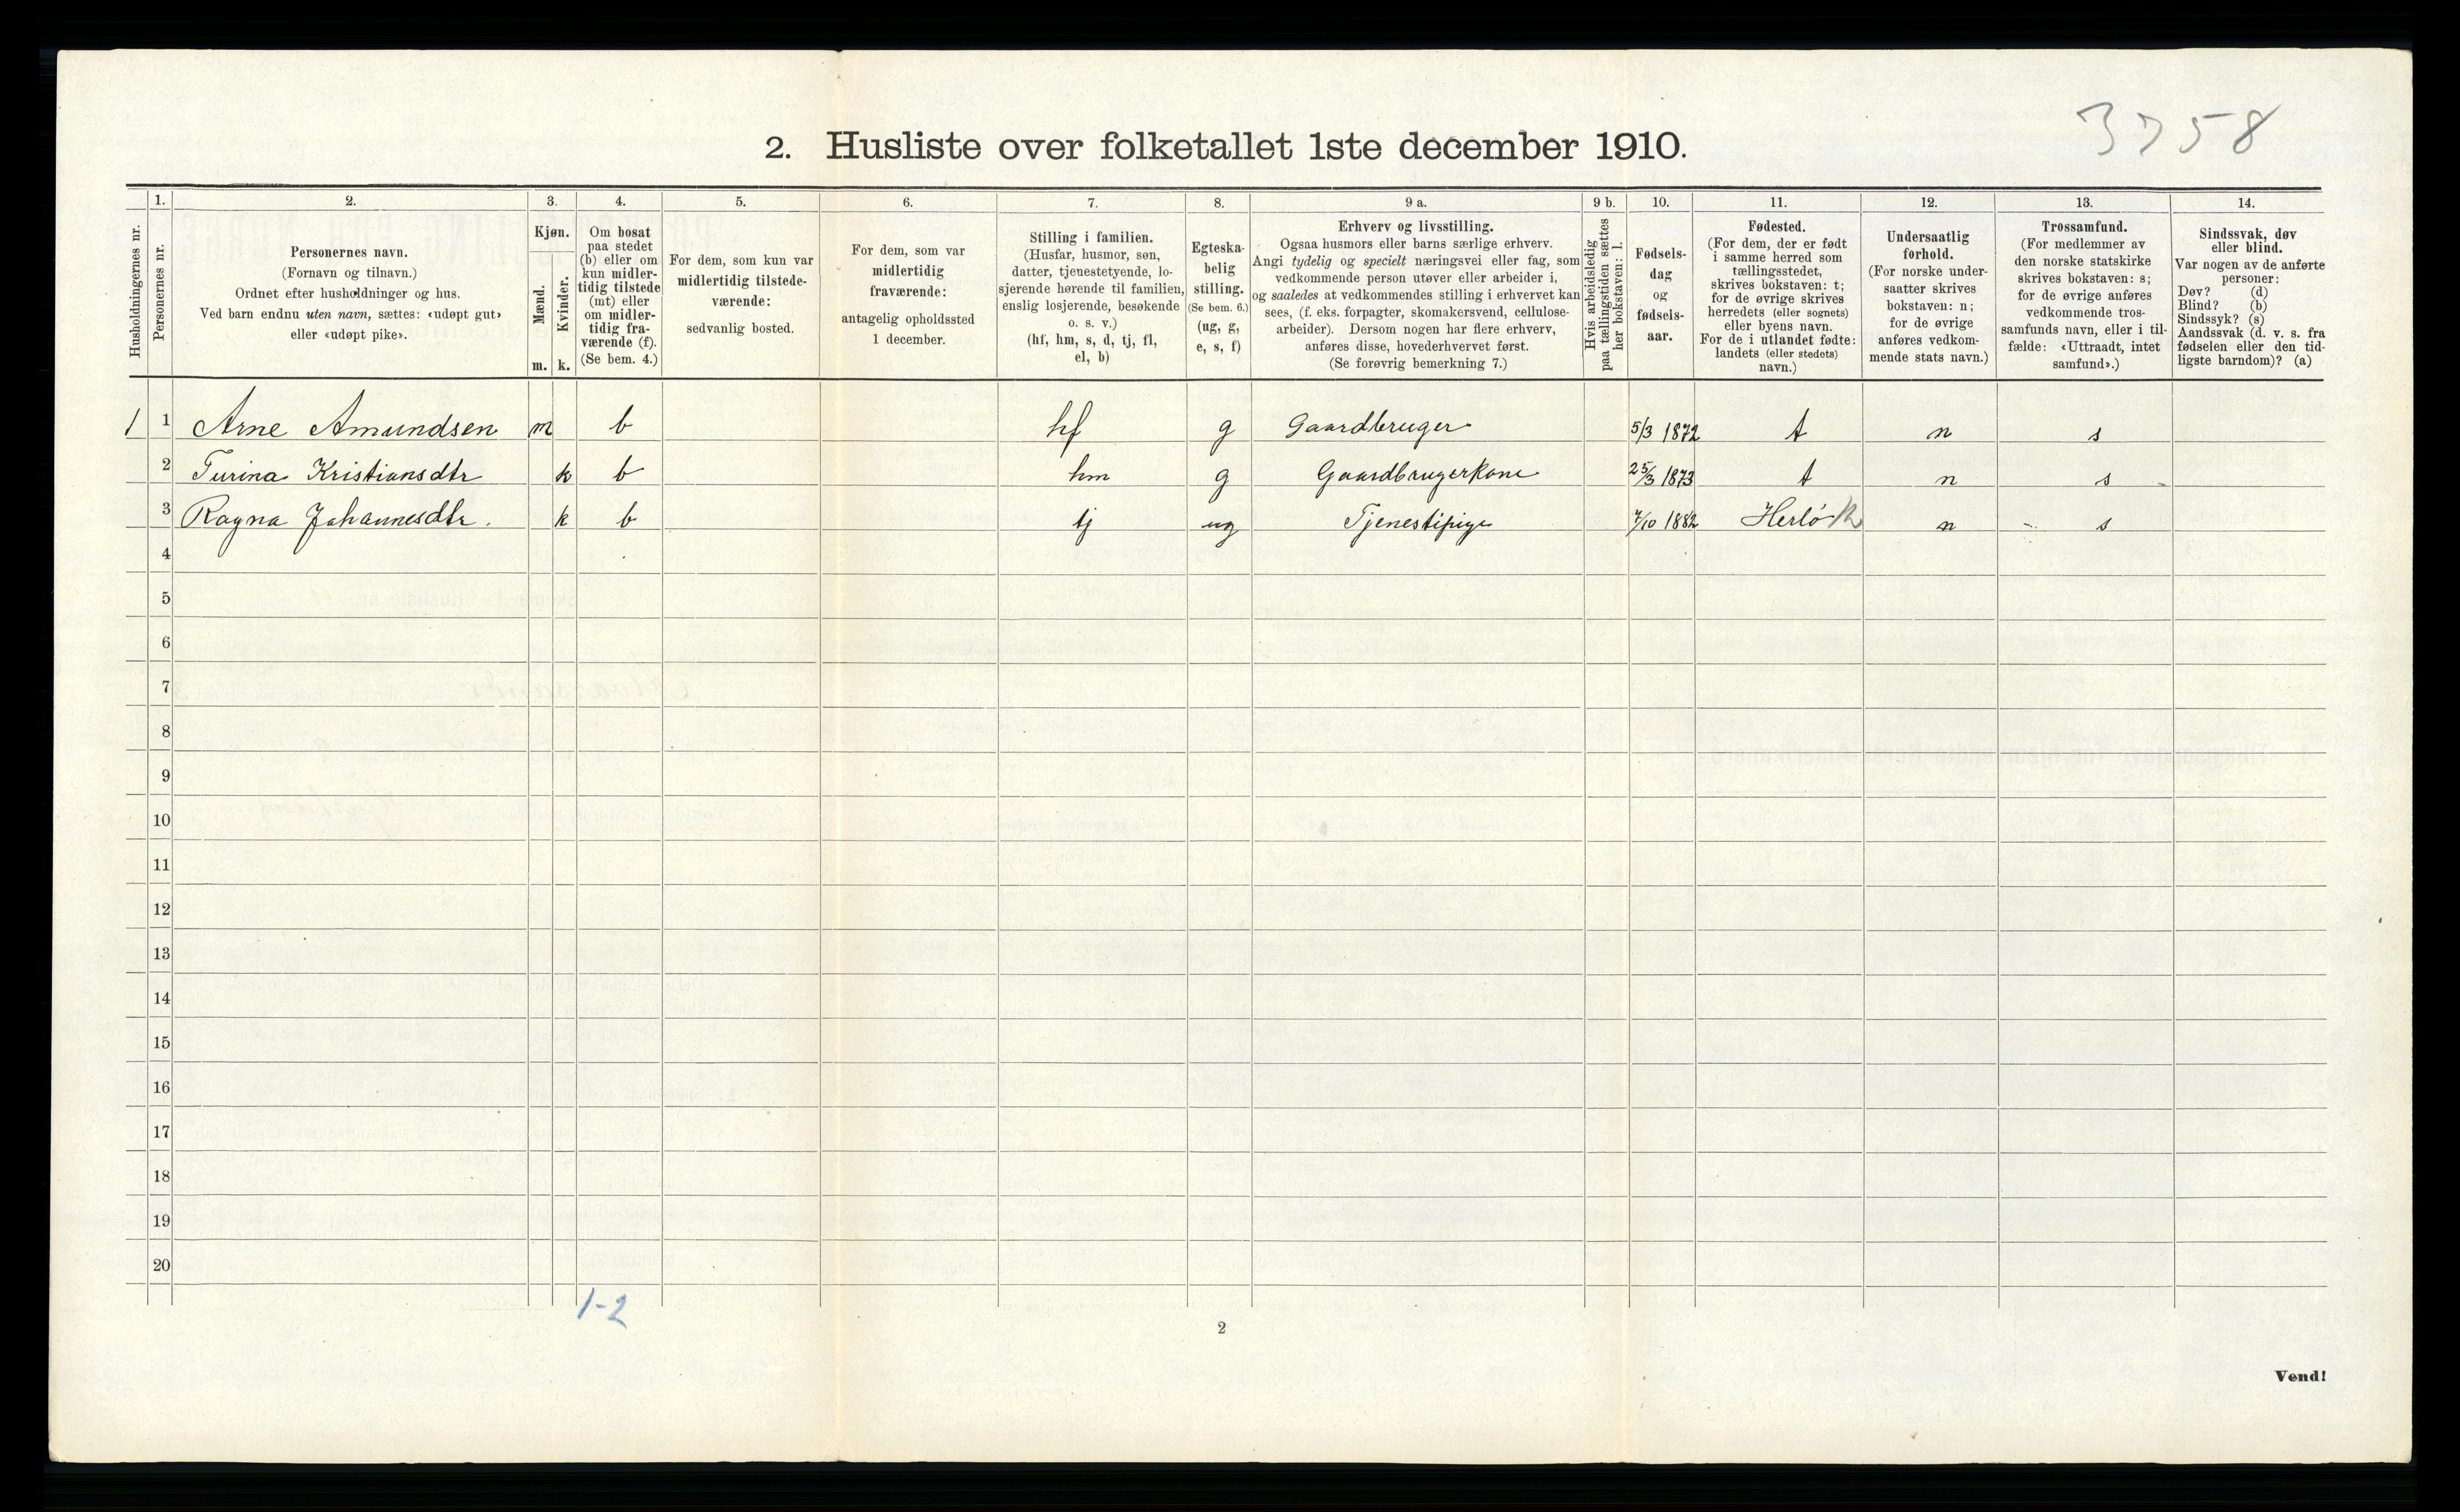 3758
2. Husliste over folketallet 1ste december 1910.
Husholdningernes nr.
1.
Personernes nr.
2.
Personernes navn.
(Fornavn og tilnavn.)
Ordnet efter husholdninger og hus.
Ved barn endnu uten navn, sættes: «udøpt gut»
eller «udøpt pike».
3.
Kjøn.
Mænd.
m.
Kvinder.
k.
4.
Om bosat
paa stedet
(b) eller om
kun midler-
tidig tilstede
(mt) eller
om midler-
tidig fra-
værende (f).
(Se bem. 4.)
5.
For dem, som kun var
midlertidig tilstede-
værende:
sedvanlig bosted.
6.
For dem, som var
midlertidig
fraværende:
antagelig opholdssted
1 december.
7.
Stilling i familien.
(Husfar, husmor, søn,
datter, tjenestetyende, lo-
sjerende hørende til familien,
enslig losjerende, besøkende
o. s. v.)
(hf, hm, s, d, tj, fl,
el, b)
8.
Egteska-
belig
stilling.
(Se bem. 6.)
(ug, g,
e, s, f)
9 a.
Erhverv og livsstilling.
Ogsaa husmors eller barns særlige erhverv.
Angi tydelig og specielt næringsvei eller fag, som
vedkommende person utøver eller arbeider i,
og saaledes at vedkommendes stilling i erhvervet kan
sees, (f. eks. forpagter, skomakersvend, cellulose-
arbeider). Dersom nogen har flere erhverv,
anføres disse, hovederhvervet først.
(Se forøvrig bemerkning 7.)
9 b.
Hvis arbeidsledig
paa tællingstiden sættes
her bokstaven: l.
10.
Fødsels-
dag
og
fødsels-
aar.
11.
Fødested.
(For dem, der er født
i samme herred som
tællingsstedet,
skrives bokstaven: t;
for de øvrige skrives
herredets (eller sognets)
eller byens navn.
For de i utlandet fødte:
landets (eller stedets)
navn.)
12.
Undersaatlig
forhold.
(For norske under-
saatter skrives
bokstaven: n;
for de øvrige
anføres vedkom-
mende stats navn.)
13.
Trossamfund.
(For medlemmer av
den norske statskirke
skrives bokstaven: s;
for de øvrige anføres
vedkommende tros-
samfunds navn, eller i til-
fælde: «Uttraadt, intet
samfund».)
14.
Sindssvak, døv
eller blind.
Var nogen av de anførte
personer:
Døv? (d)
Blind? (b)
Sindssyk? (s)
Aandssvak (d. v. s. fra
fødselen eller den tid-
ligste barndom)? (a)
1 1 Arne Amundsen m b hf g Gaardbruger 5/3 1872 t n s
2 Turina Kristiansdtr k b hm g Gaardbrugerkone 25/3 1873 t n s
3 Ragna Johannesdtr. k b tj ug Tjenestipige 7/10 1882 Herlö n s
4
5
6
7
8
9
10
11
12
13
14
15
16
17
18
19
20
1-2
2
Vend!